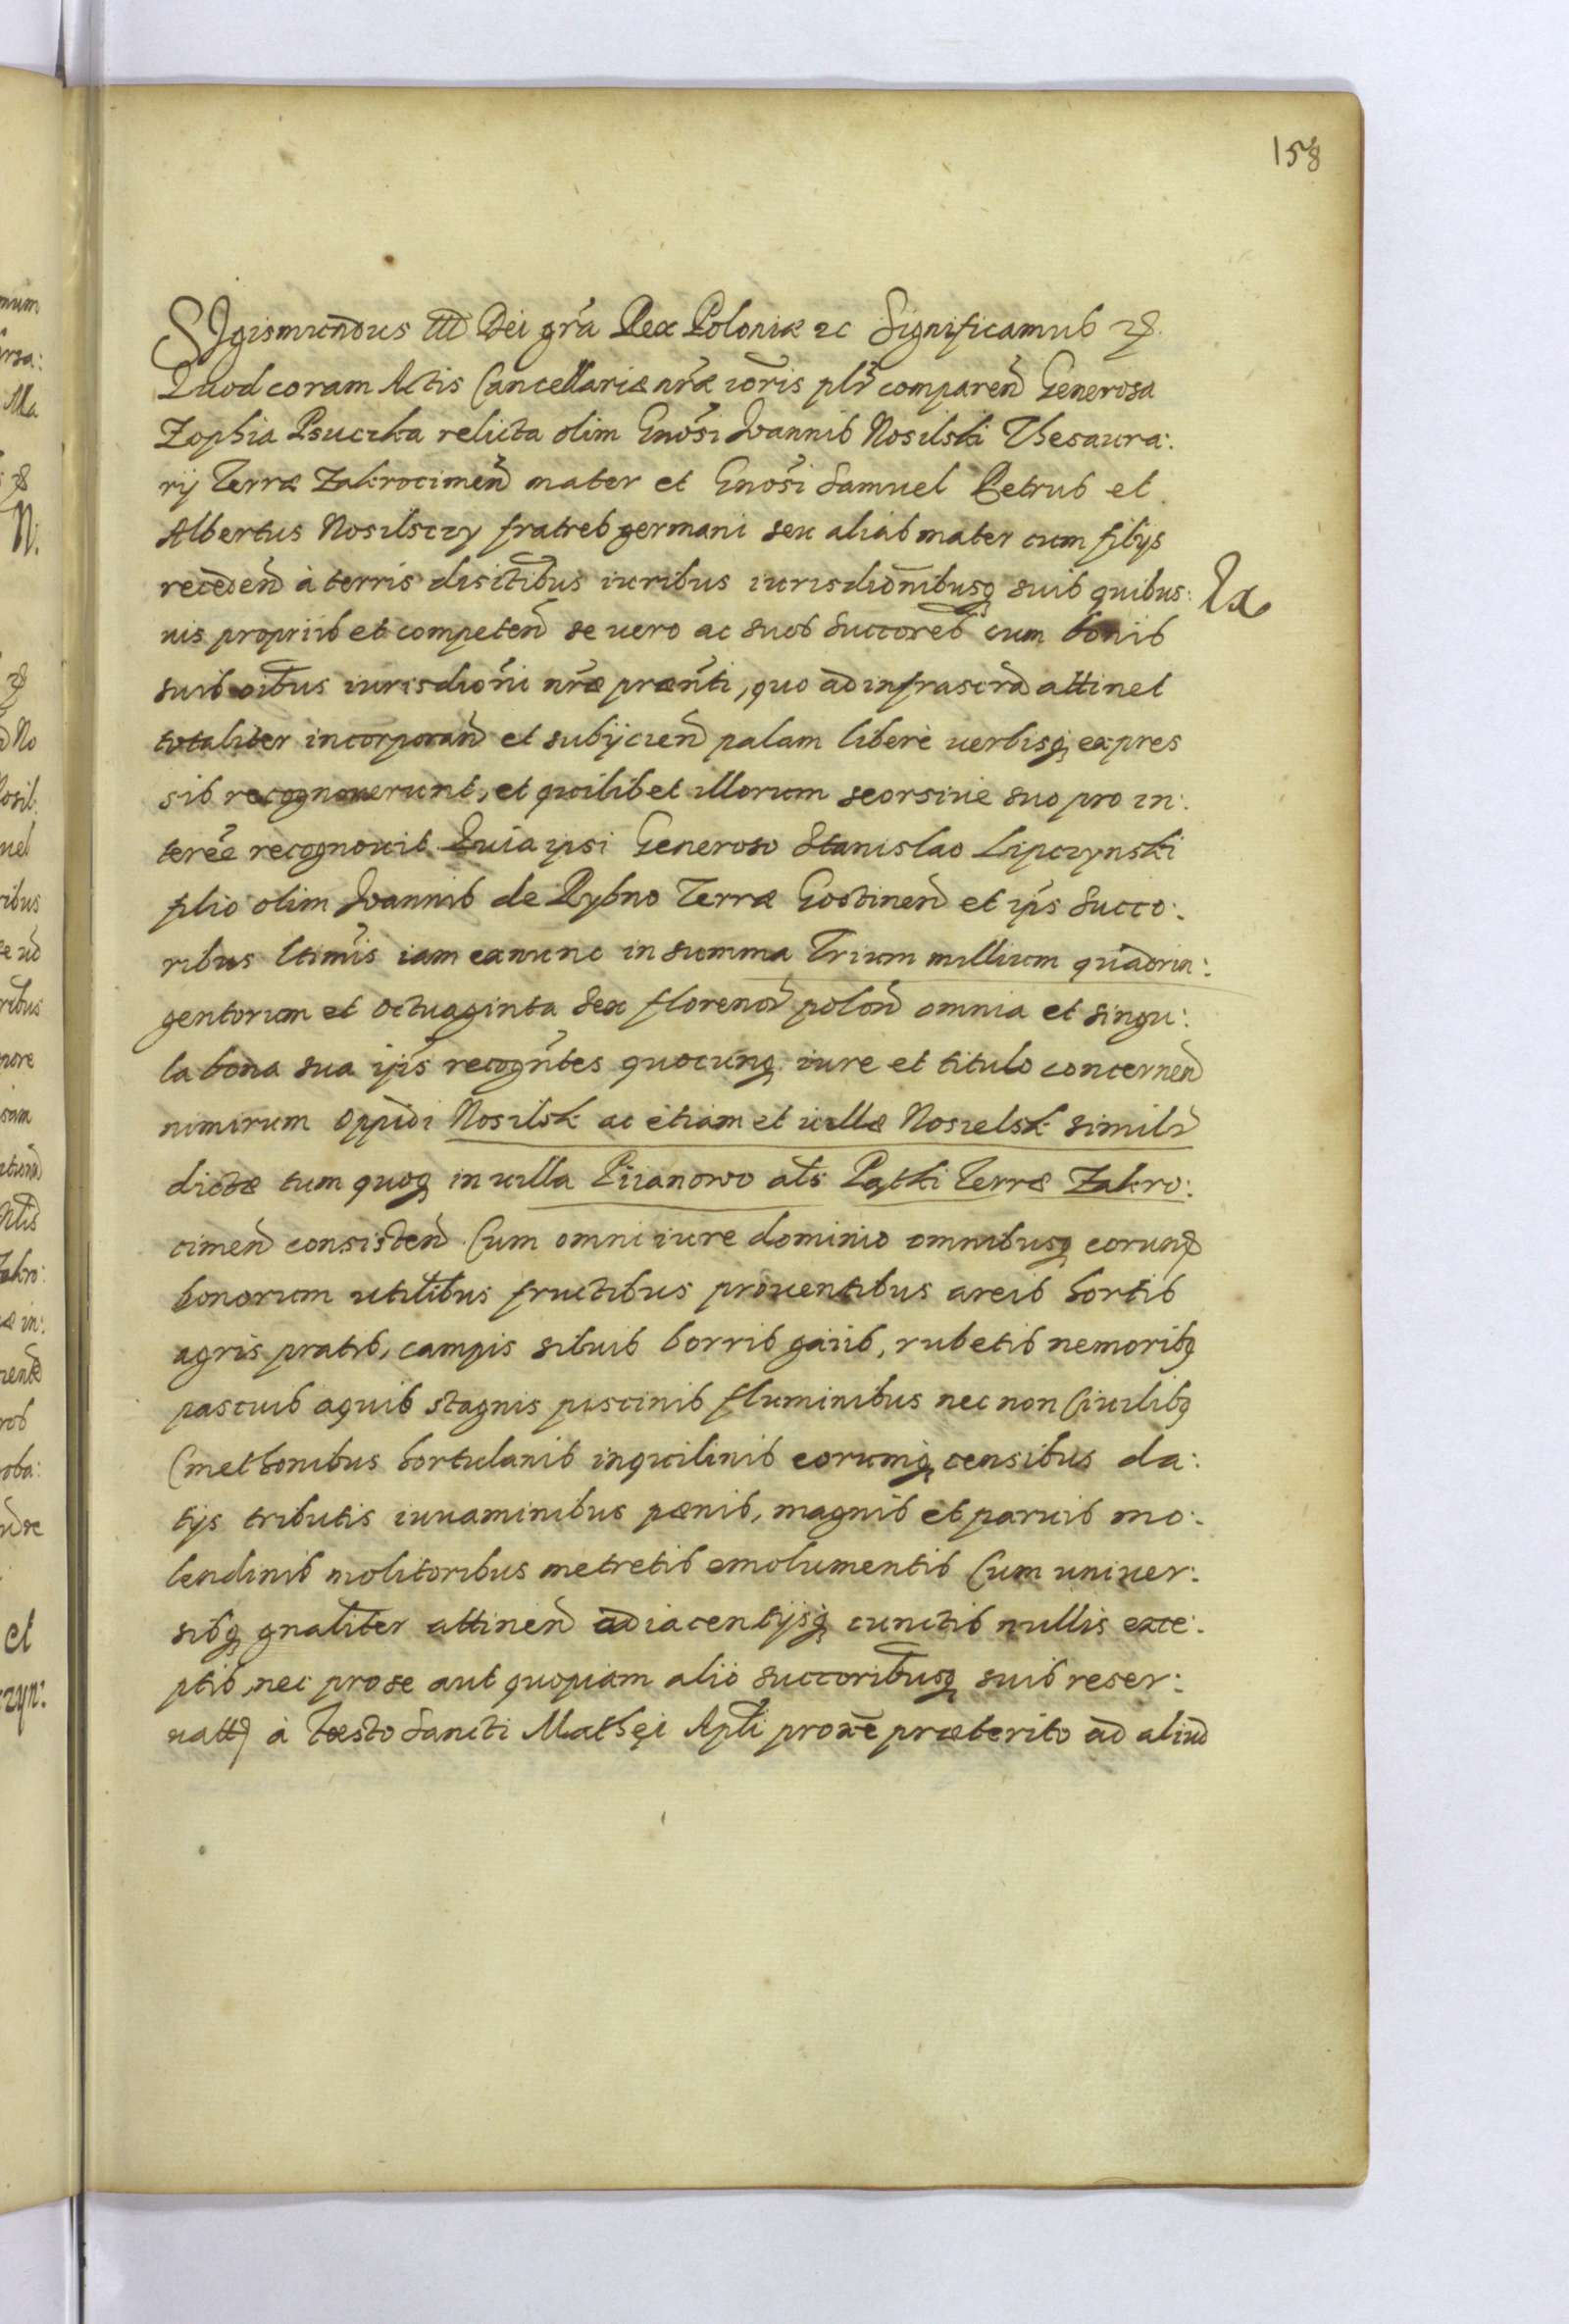 158
SIgismundus III Dei grã Rex Poloniæ ⁊c Significamus ⁊ꝭ.
Quod coram Actis Cancellariæ nræ ioris plr comparen Generosa
Zophia Psuczka relicta olim Gnosi Joannis Nosilski Thesaura:
rij Terræ Zakrocimen mater et Gnosi Samuel Petrus et
Albertus Nosilsczy fratres germani seu alias mater cum filijs
receden à terris disictibus iuribus iurisdionibusq suis quibus:
uis propriis et competen se uero ac suos Succores cum bonis
suis oibus iurisdioni nræ prænti, quo ad infrascra attinet
totaliter incorporan et subijcien palam libere uerbisq expres
sis recognouerunt, et quilibet illorum seorsiue suo pro in:
teree recognouit Quia ipsi Generoso Stanislao Lipczynski
filio olim Joannis de Rybno Terræ Gostinen et ips Succo:
ribus ltimis iam exnunc in summa Trium millium quadrin:
gentorum et octuaginta Sex floreno polon omnia et singu:
la bona sua ips recogntes quocunq iure et titulo concernen
nimirum Oppidi Nosilsk ac etiam et uillæ Nosielsk simili
dictæ tum quoq in uilla Piianowo als Pątki Terræ Zakro:
cimen consisten Cum omni iure dominio omnibusq eorund
bonorum utilibus fructibus prouentibus areis hortis
agris pratis, campis siluis borris gaiis, rubetis nemoribq
pascuis aquis stagnis piscinis fluminibus nec non Ciuilibq
Cmethonibus hortulanis inquilinis eorumq censibus da:
tijs tributis iuuaminibus pænis, magnis et paruis mo:
lendinis molitoribus metretis emolumentis Cum uniuer:
sibq gnaliter attinen adiacentijsq cunctis nullis exce:
ptis, nec pro se aut quopiam alio succoribusq suis reser:
uatt à Fæsto Sancti Mathęi Apli proxe præterito ad aliud